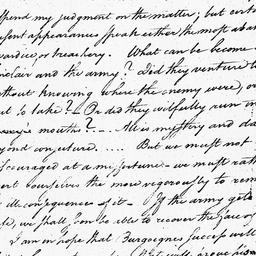 spend my judgment on the matter; but cert
esent appearances speak either the most aban
wardice, or treachery. What can be become
inclair and the army? Did they venture b
ithout knowing where the enemy were, or
at to take? Or did they wilfully run in
mouths? All is mystery and da
yond conjecture. .... But we must not
iscouraged at a misfortune - we must rath
ert ourselves the more vigorously to rem
ill consequences of it. If the army
we shall soon be able to recover the face of
I am in hope that Burgoynes success will
prove